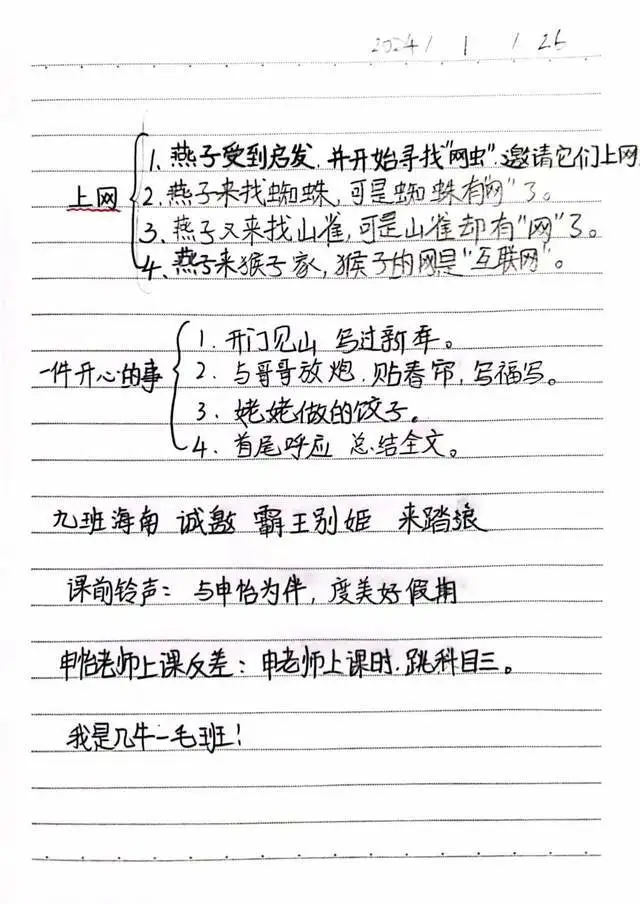 2024/1/26
1. 燕子受到启发,并开始寻找"网虫",邀请它们上网
上网
2. 燕子来找蜘蛛,可是蜘蛛有"网"了。
3. 燕子又来找山雀,可是山雀却有"网"了。
4. 燕子来猴子家,猴子的网是"互联网"。
1. 开门见山 写过新年。
一件开心的事
2. 与哥哥放炮.贴春帘,写福写。
3. 姥姥做的饺子。
4. 首尾呼应 总结全文。
九班海南 诚邀 霸王别姬 来踏浪
课前铃声:与申怡为伴,度美好假期
申怡老师上课反差:申老师上课时.跳科目三。
我是几牛一毛班!